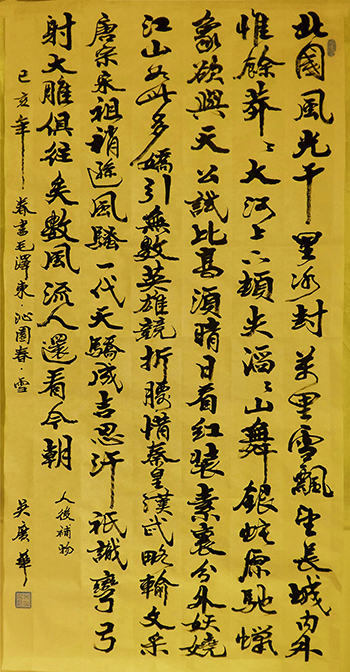 北國風光千里冰封萬里雪飄望長城內外
惟餘莽々大河上下頓失滔々山舞銀蛇原馳蠟
象欲與天公試比高須晴日看紅裝素裹分外妖嬈
江山如此多嬌引無數英雄競折腰惜秦皇漢武略輸文采
唐宗宋祖稍遜風騷一代天驕成吉思汗祇識彎弓
射大雕俱往矣數風流人還看今朝
人後補物
己亥年春書毛澤東·沁園春·雪
吳廣華